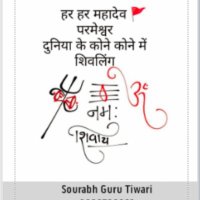 हर हर महादेव 🚩
परमेश्वर
दुनिया के कोने कोने में
शिवलिंग
ॐ
नमः
शिवाय
Sourabh Guru Tiwari